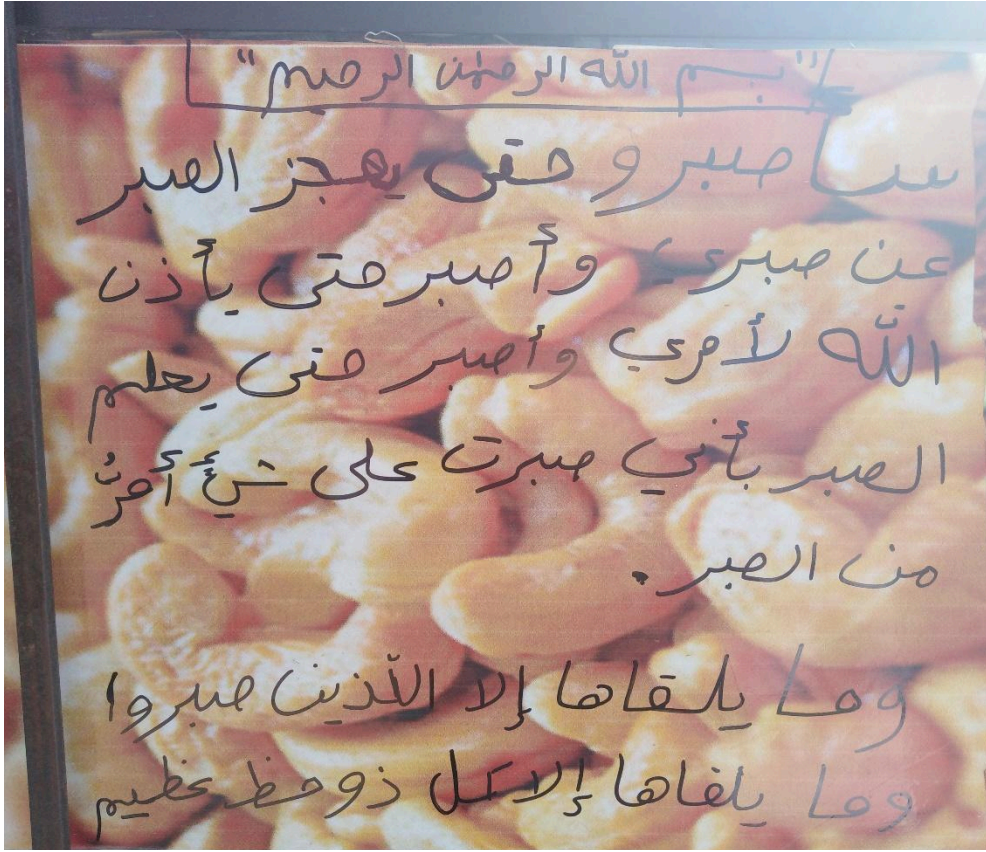 "بسم الله الرحمٰن الرحيم"
سأصبر و حتى يعجز الصبر
عن صبري وأصبر حتى يأذن
اللّه لأمري وأصبر حتى يعلم
الصبر بأني صبرت على شيءٍ أمرُّ
من الصبر.
وما يلقاها إلا الّذين صبروا
وما يلقاها إلا كل ذو حظ عظيم